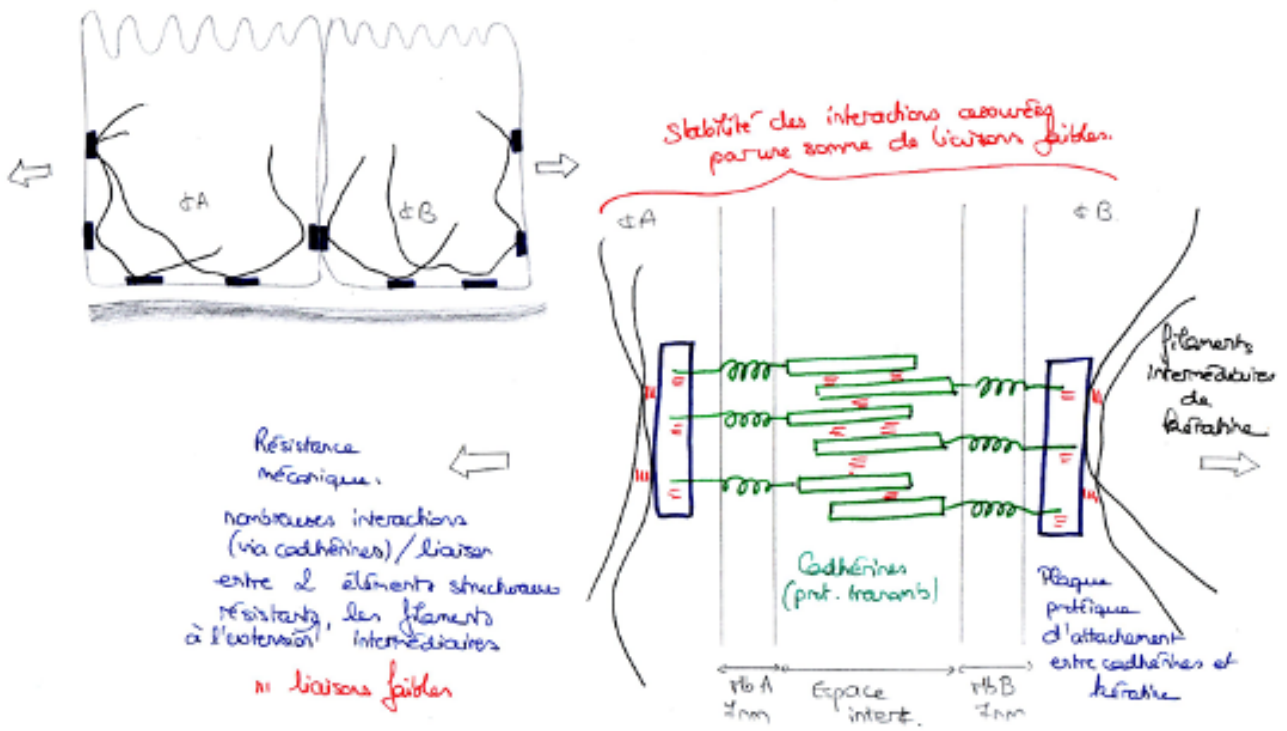 ¢A
¢B
Stabilité des interactions assurées
par une somme de liaisons faibles.
¢A
¢B
filaments
intermédiaires
de
kératine
Résistance
mécanique.
nombreuses interactions
(via cadhérines) / liaison
entre 2 éléments structuraux
résistants, les filaments
à l'extension intermédiaires
liaisons faibles
Cadhérines
(prot. transmb)
Plaque
protéique
d'attachement
entre cadhérines et
kératine
mb A
7nm
Espace
intert.
mb B
7nm